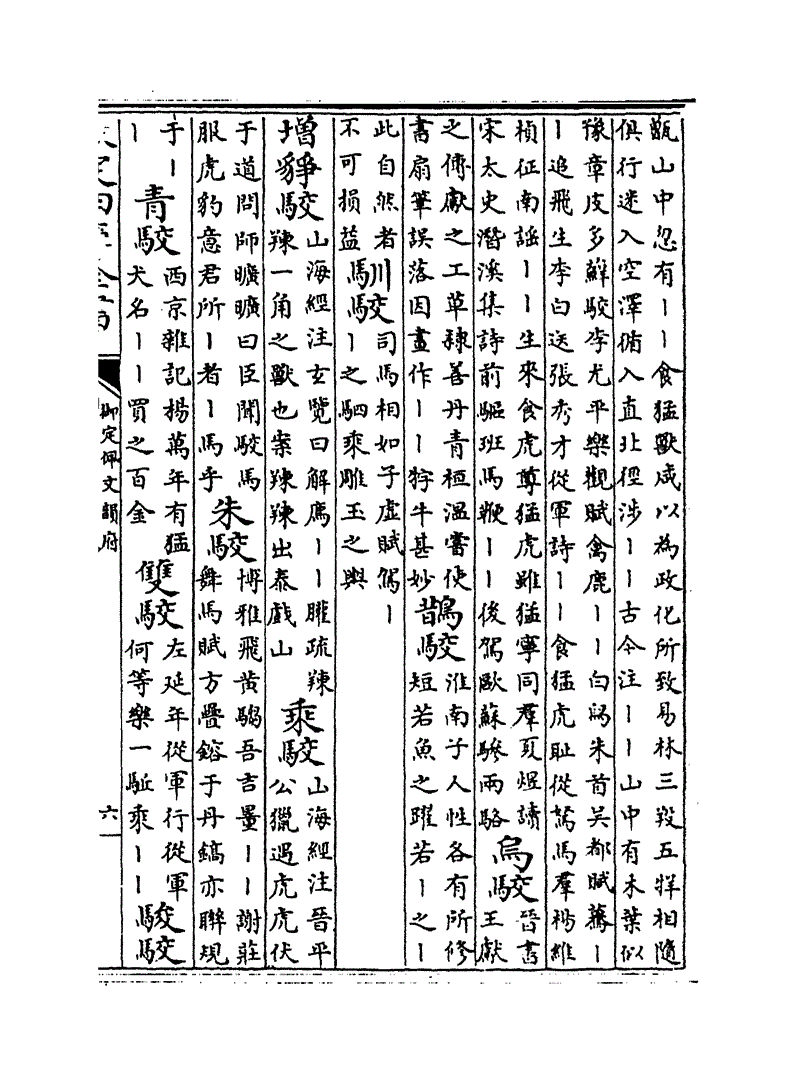 甑山中忽有丨丨食猛獸咸以為政化所致易林三羖五牂相隨
俱行迷入空澤循入直北徑涉丨丨古今注丨丨山中有木葉似
豫章皮多癬駮李尤平樂觀賦禽鹿丨丨白鷢朱首吳都賦驀丨
丨追飛生李白送張秀才從軍詩丨丨食猛虎耻從駑馬羣楊維
楨征南謡丨丨生來食虎尊猛虎雖猛寧同羣夏煜讀
宋太史潛溪集詩前驅班馬鞭丨丨後駕歐蘇驂兩輅
烏駮
晉書
王獻
之傳獻之工草隸善丹青桓溫嘗使
書扇筆誤落因畫作丨丨牸牛甚妙
鵲駮
淮南子人性各有所修
短若魚之躍若丨之丨
此自然者
不可損益
馴駮
司馬相如子虛賦駕丨
丨之駟乘雕玉之輿
增
駮
山海經注玄覽曰解廌丨丨朧疏䍶
䍶一角之獸也案䍶䍶出泰戲山
乘駮
山海經注晉平
公獵遇虎虎伏
于道問師曠曠曰臣聞駮馬
服虎豹意君所丨者丨馬乎
朱駮
博雅飛黃騧吾吉量丨丨謝莊
舞馬賦方疊鎔于丹縞亦聯規
于丨
丨
青駮
西京雜記楊萬年有猛
犬名丨丨買之百金
雙駮
左延年從軍行從軍
何等樂一驅乘丨丨
駿駮
御定佩文韻府
六